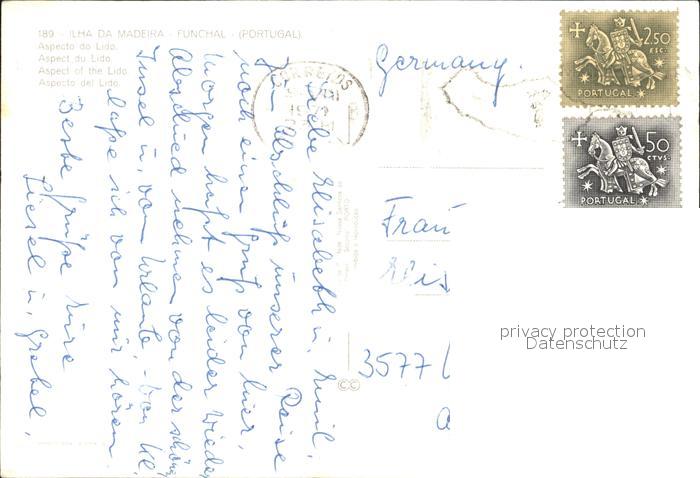 189 - ILHA DA MADEIRA - FUNCHAL - (PORTUGAL)
Aspecto do Lido.
Aspect du Lido.
Aspect of the Lido.
Aspecto del Lido.
Liebe Elisabeth u. Emil,
Zum Abschluß unserer Reise
noch einen Gruß von hier,
Morgen heißt es leider wieder
Abschied nehmen von der schönen
Insel u. vom Urlaub.
lasse ich von mir hören.
Beste Grüße Eure
Liesel u. Gretel.
CORREIOS
Germany.
2.50
ESC.
PORTUGAL
50
CTVS.
PORTUGAL
Frau
Elis
3577
privacy protection
Datenschutz